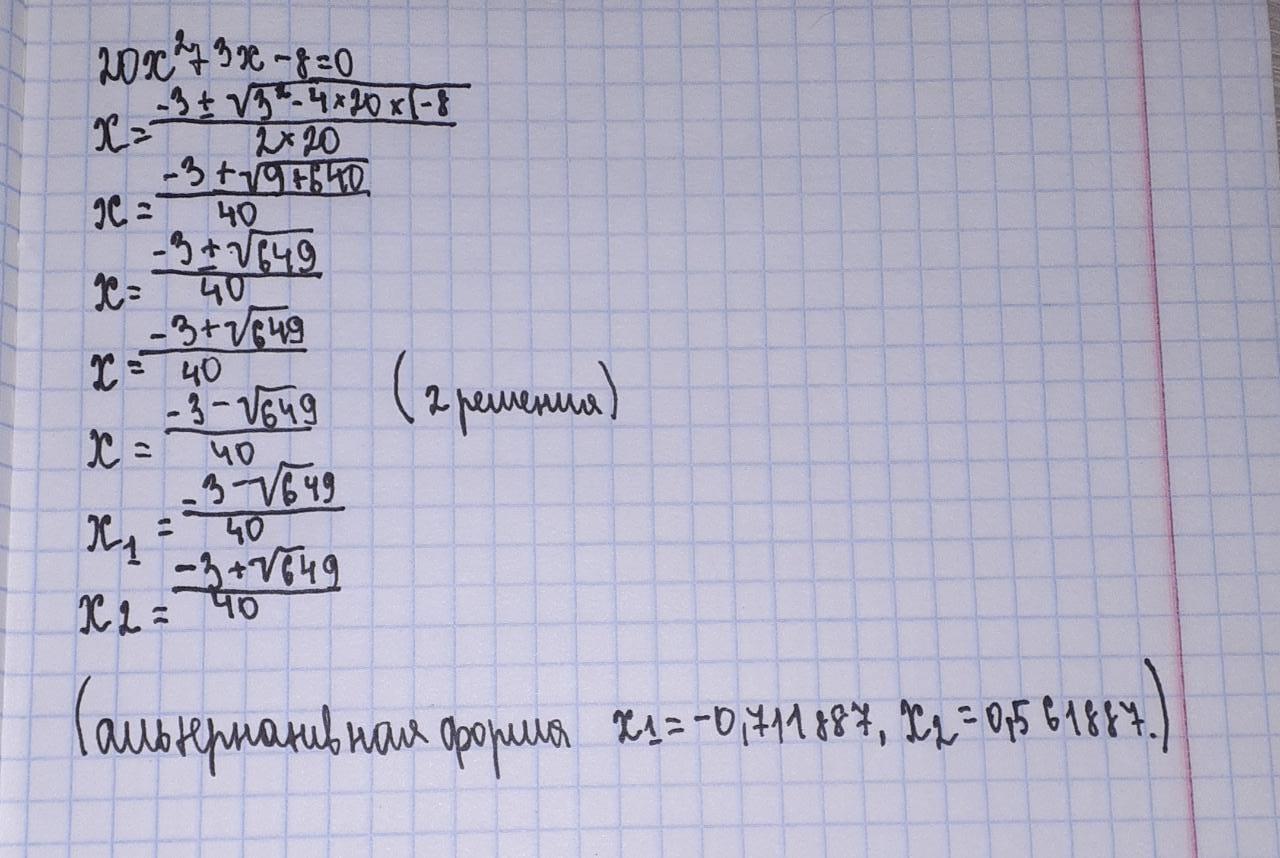 20x²+3x-8=0
x=(-3±√(3²-4×20×(-8))/(2×20)
x=(-3+√(9+640))/40
x=(-3±√649)/40
x=(-3+√649)/40
(2 решения)
x=(-3-√649)/40
x₁=(-3-√649)/40
x2=(-3+√649)/40
(альтернативная форма x₁=-0,711887, x₂=0,561887.)